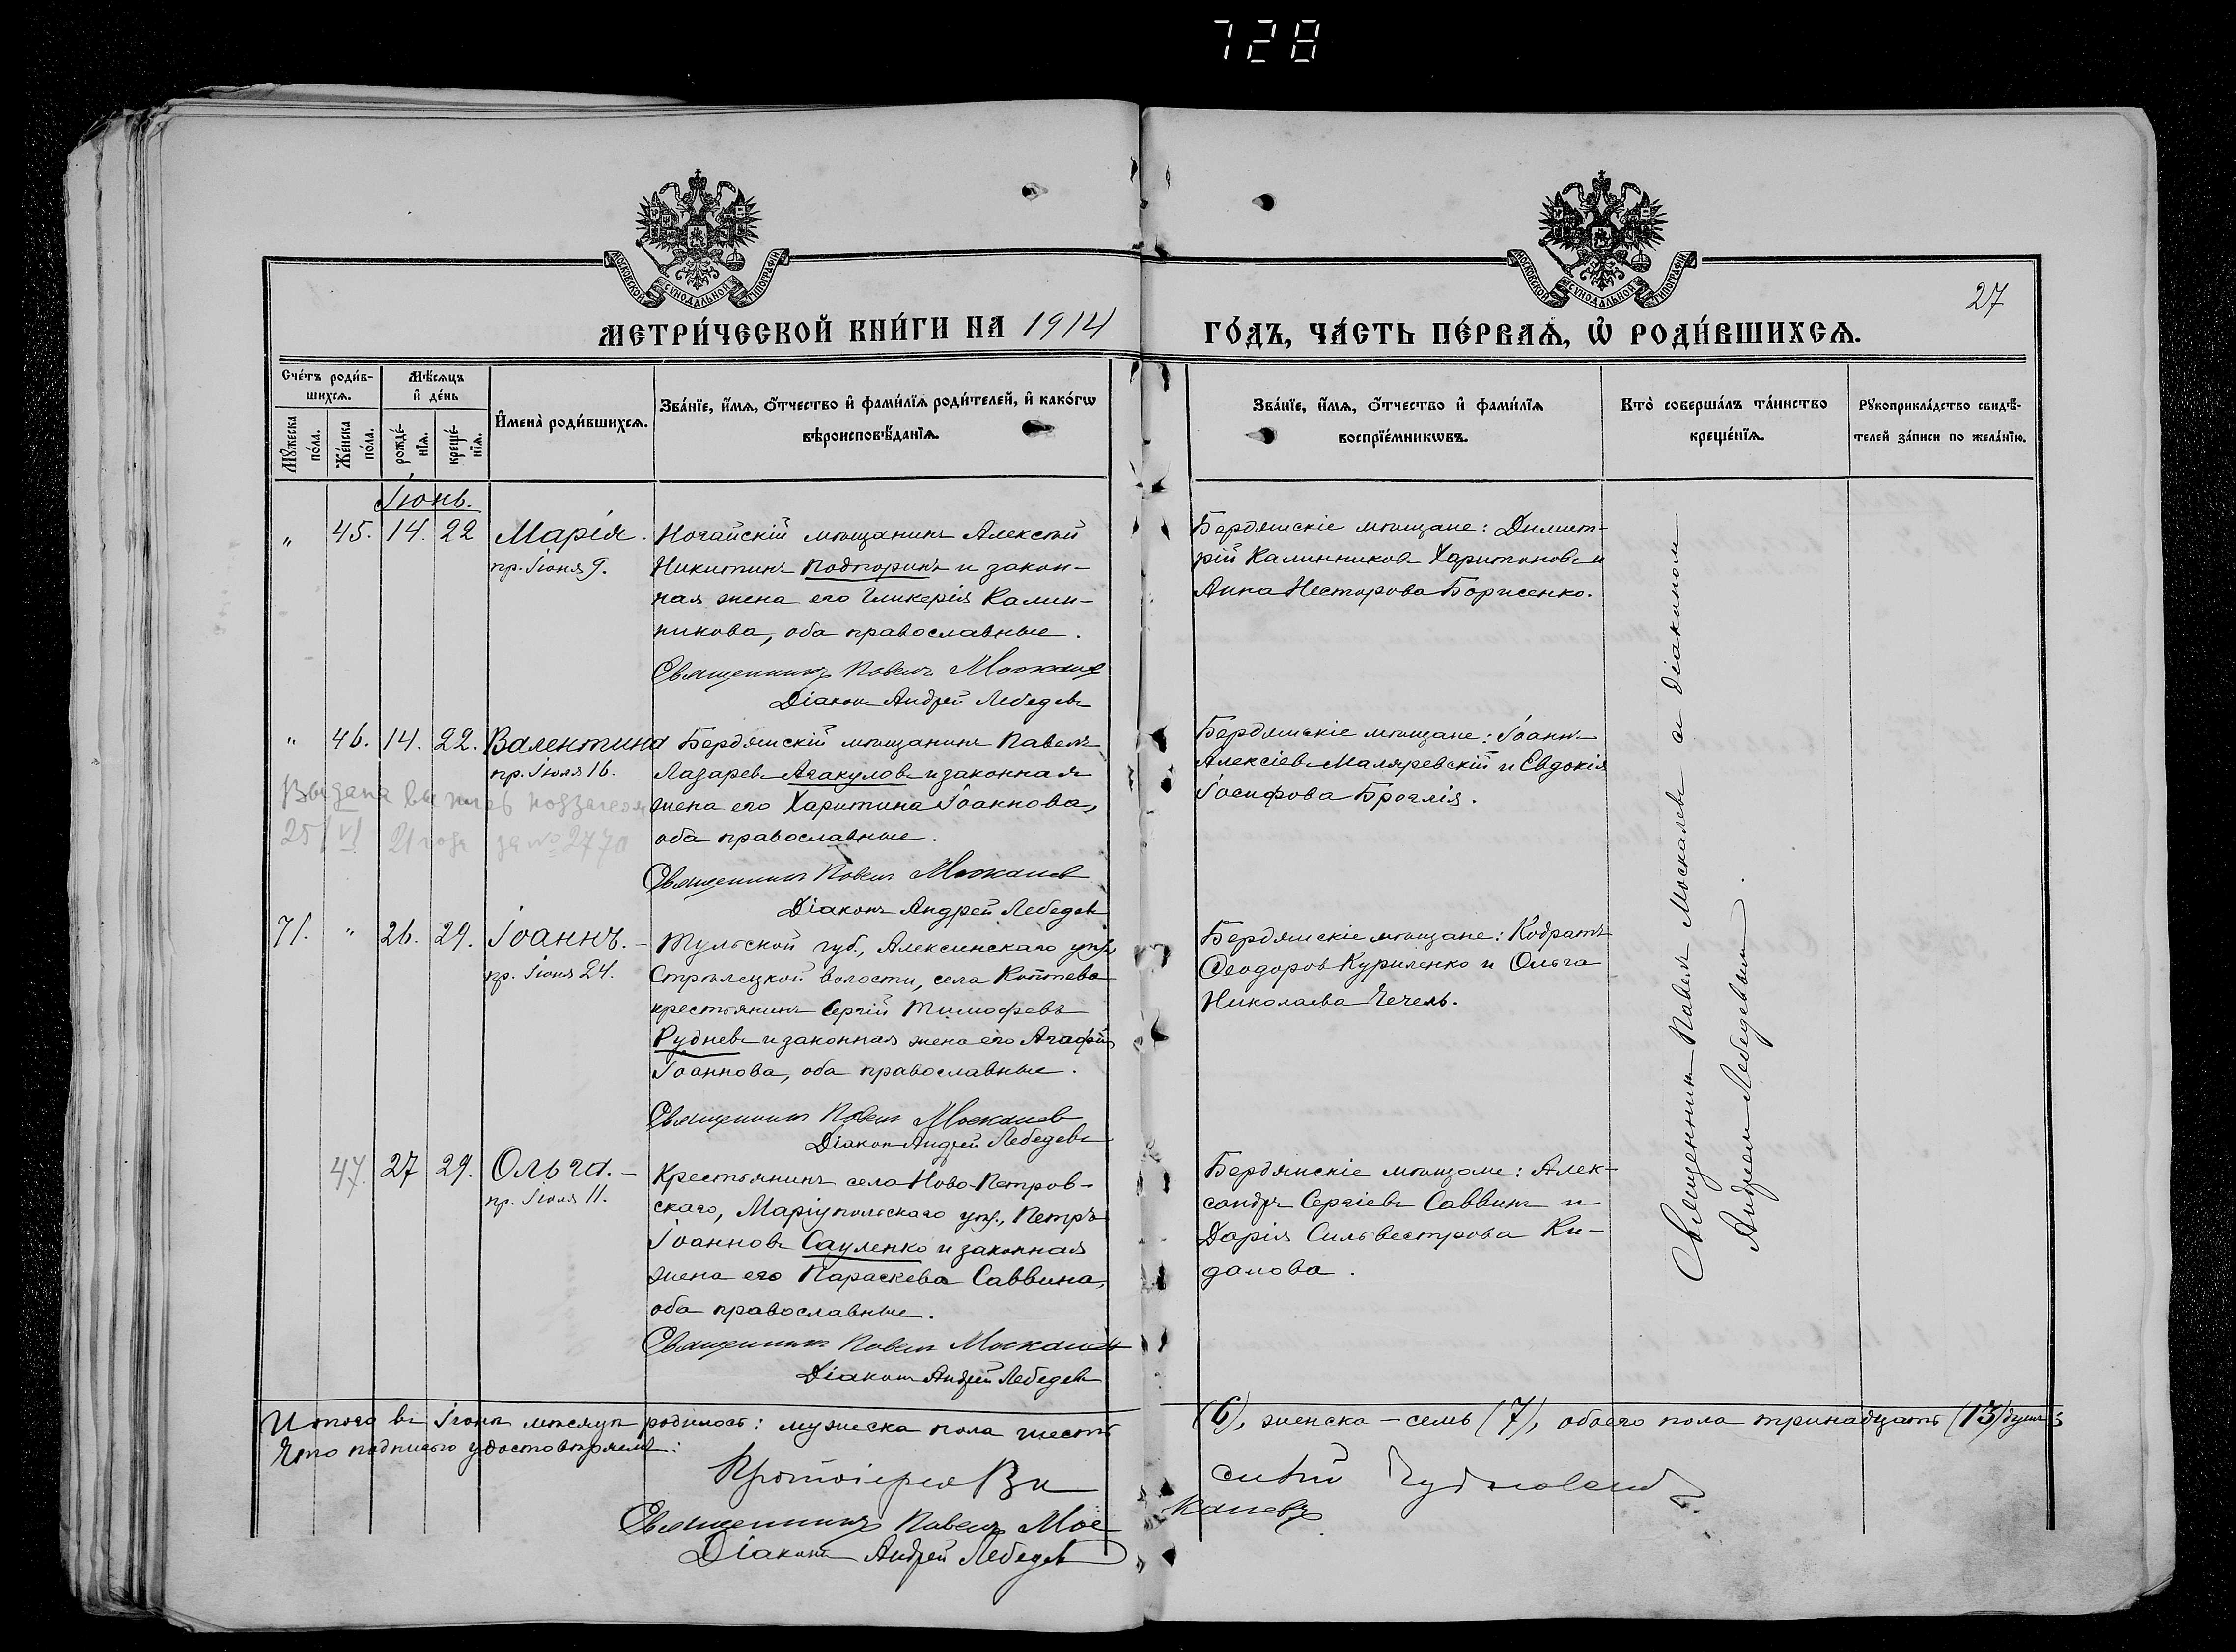 728
МОСКОВСКОЙ СѴНОДАЛЬНОЙ ТИПОГРАФІИ
МОСКОВСКОЙ СѴНОДАЛЬНОЙ ТИПОГРАФІИ
27
МЕТРИ́ЧЕСКОЙ КНИ́ГИ НА 1914
ГО́ДЪ, ЧА́СТЬ ПЕ́РВАѦ, Ѡ҆ РОДИ́ВШИХСѦ.
Сче́тъ роди́в-
шихсѧ.
Мꙋжеска по́ла.
Же́нска по́ла.
Мѣ́сѧцъ
и҆ де́нь
рожде́-
нїѧ.
креще́-
нїѧ.
И҆мена̀ роди́вшихсѧ.
Зва́нїе, и҆́мѧ, ѻ҆́тчество и҆ фами́лїѧ роди́телей, и҆ како́гѡ
вѣроисповѣ́данїѧ.
Зва́нїе, и҆́мѧ, ѻ҆́тчество и҆ фами́лїѧ
воспрїе́мникѡвъ.
Кто̀ соверша́лъ та́инство
креще́нїѧ.
Рꙋкоприкла́дство свидѣ́-
телей за́писи по жела́нїю.
Іюнь.
" 45. 14. 22 Марія.
пр. Іюня 9.
Ногайскій мѣщанинъ Алексѣй
Никитинъ Подгоринъ и закон-
ная жена его Гликерія Калин-
никова, оба православные.
Священникъ Павелъ Москалевъ
Діаконъ Андрей Лебедевъ
Бердянскіе мѣщане: Димит-
рій Калинниковъ Харитоновъ и
Анна Несторова Борисенко.
" 46. 14. 22. Валентина
пр. Іюля 16.
Выдана
25/VI 21 года за № 2770
Бердянскій мѣщанинъ Павелъ
Лазаревъ Агакуловъ и законная
жена его Харитина Іоаннова,
оба православные.
Священникъ Павелъ Москалевъ
Діаконъ Андрей Лебедевъ
Бердянскіе мѣщане: Іоаннъ
Алексіевъ Маляревскій и Евдокія
Іосифова Броглія.
71. " 26. 29. Іоаннъ. –
пр. Іюня 24.
Тульской губ., Алексинскаго уѣз.,
Стрѣлецкой волости, села Коптева
крестьянинъ Сергій Тимофеевъ
Рудневъ и законная жена его Агафія
Іоаннова, оба православные.
Священникъ Павелъ Москалевъ
Діаконъ Андрей Лебедевъ
Бердянскіе мѣщане: Кодратъ
Ѳеодоровъ Куриленко и Ольга
Николаева Чечель.
47. 27 29. Ольга. –
пр. Іюля 11.
Крестьянинъ села Ново-Петров-
скаго, Маріупольскаго уѣз., Петръ
Іоанновъ Сауленко и законная
жена его Параскева Саввина,
оба православные.
Священникъ Павелъ Москалевъ
Діаконъ Андрей Лебедевъ
Бердянскіе мѣщане: Алек-
сандръ Сергіевъ Саввинъ и
Дарія Сильвестрова Ки-
далова.
Священникъ Павелъ Москалевъ съ діакономъ
Андреемъ Лебедевымъ.
Итого въ Іюнѣ мѣсяцѣ родилось: мужеска пола шесть (6), женска – семь (7), обоего пола тринадцать (13) душъ;
Что подписью удостовѣряемъ:
Протоіерей
Священникъ Павелъ Москалевъ
Діаконъ Андрей Лебедевъ